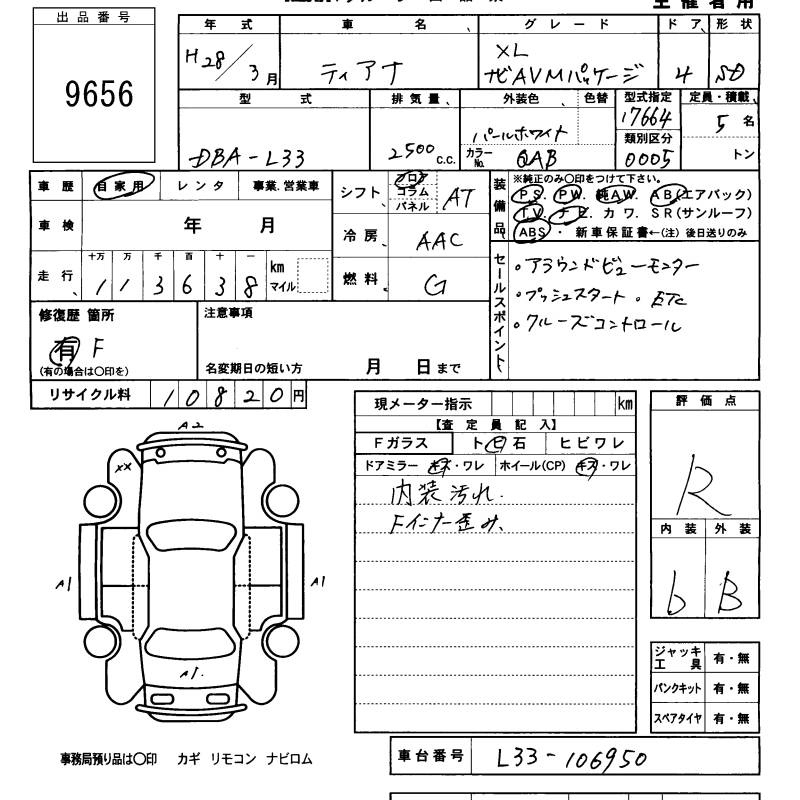 主催者用
出品番号
9656
年式 車名 グレード ドア 形状
H28/3月 ティアナ XL ナビAVMパッケージ 4 SD
型式 排気量 外装色 色替 型式指定 定員・積載
DBA-L33 2500 c.c. パールホワイト 17664 5名
カラーNo. QAB 類別区分 0005 トン
車歴 自家用 レンタ 事業.営業車
車検 年 月
走行 十万 万 千 百 十 一 km マイル
113638
シフト フロア コラム パネル AT
冷房 AAC
燃料 G
装備品 ※純正のみ○印をつけて下さい。
PS. PW. 純AW. AB(エアバック)
TV. ナビ. カワ. SR(サンルーフ)
ABS ・ 新車保証書←(注) 後日送りのみ
セールスポイント
・アラウンドビューモニター
・プッシュスタート ・ETC
・クルーズコントロール
修復歴 箇所
有 F
(有の場合は○印を)
注意事項
名変期日の短い方 月 日まで
リサイクル料 10820円
現メーター指示 km
【査定員記入】
Fガラス トビ石 ヒビワレ
ドアミラー キズ・ワレ ホイール(CP) キズ・ワレ
内装汚れ.
Fインナー歪み、
評価点
R
内装 外装
b B
A2
XX
A1 A1
A1.
ジャッキ工具 有・無
パンクキット 有・無
スペアタイヤ 有・無
事務局預り品は○印 カギ リモコン ナビロム
車台番号 L33-106950